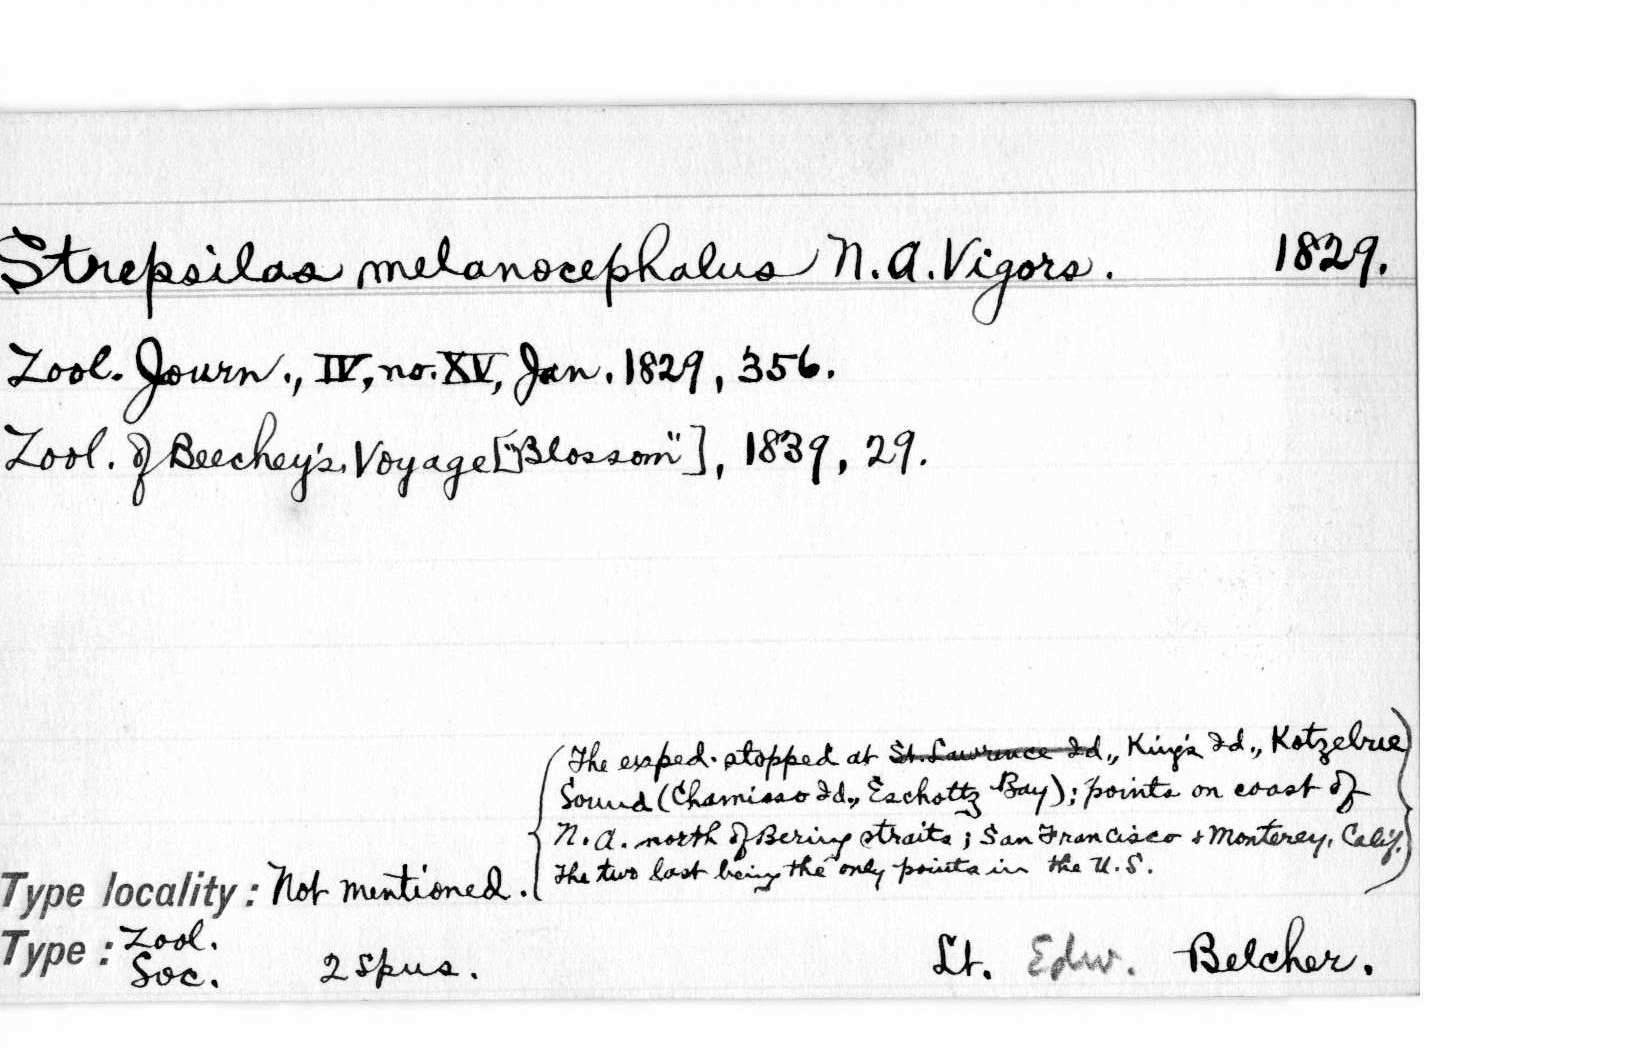 Strepsilas melanocephalus N.A. Vigors. 1829.
Zool. Journ., IV, no. XV, Jan. 1829, 356.
Zool. of Beechey's Voyage ["Blossom"], 1839, 29.
The exped. stopped at St. Lawrence Id., King's Id., Kotzebue
Sound (Chamisso Id., Eschottz Bay); points on coast of
N.A. north of Bering straits; San Francisco + Monterey, Calif.
the two last being the only points in the U.S.
Type locality: Not mentioned.
Type: Zool. Soc. 2 spns. Lt. Edw. Belcher.